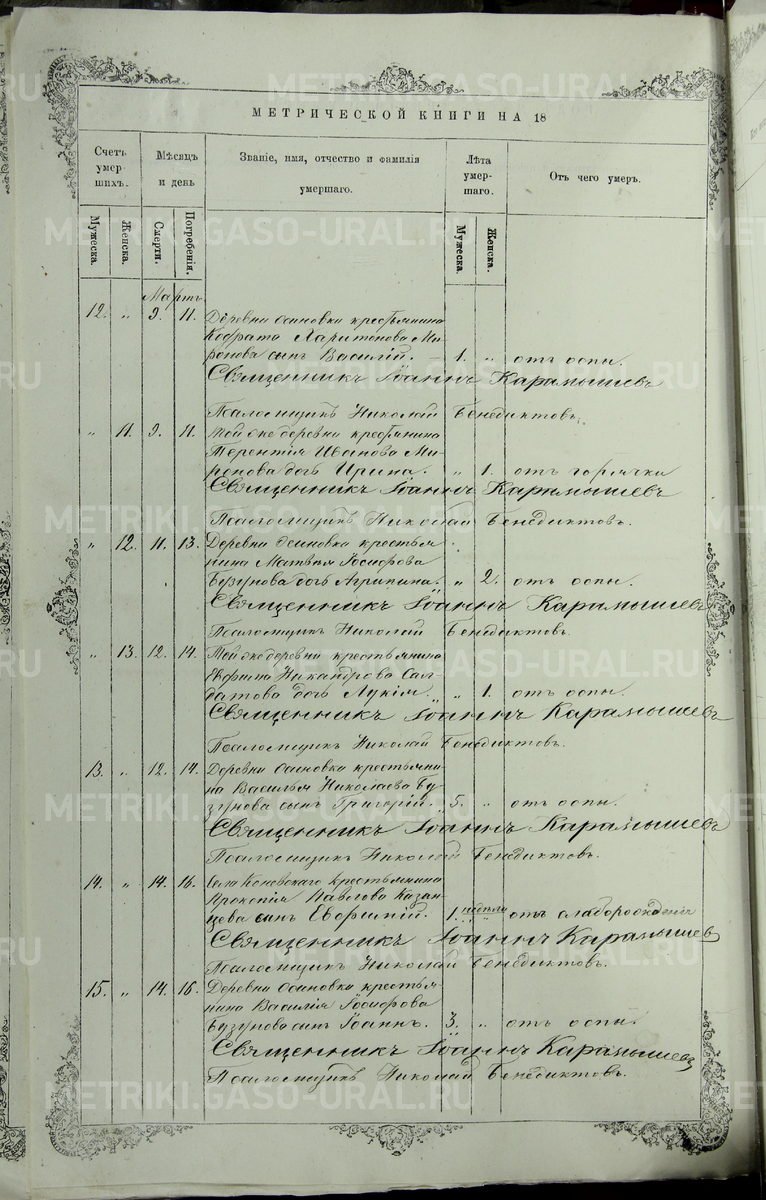 МЕТРИЧЕСКОЙ КНИГИ НА 18
Счетъ умер- шихъ.
Мѣсяцъ и день
Званіе, имя, отчество и фамилія умершаго.
Лѣта умер- шаго.
Отъ чего умеръ.
Мужеска.
Женска.
Смерти.
Погребенія.
Мужеска.
Женска.
Мартъ
12. " 9. 11. Деревни Осиновки крестьянина
Кодрата Харитонова Ми-
ронова сынъ Василій. 1. " отъ оспы.
Священникъ Іоаннъ Карамышевъ
Псаломщикъ Николай Бенедиктовъ.
" 11. 9. 11. Той же деревни крестьянина
Терентія Иванова Ми-
ронова дочь Ирина. " 1. отъ горячки
Священникъ Іоаннъ Карамышевъ
Псаломщикъ Николай Бенедиктовъ.
" 12. 11. 13. Деревни Осиновки крестья-
нина Матвея Ѳосиорова
Бузунова дочь Агрипина. " 2. отъ оспы.
Священникъ Іоаннъ Карамышевъ
Псаломщикъ Николай Бенедиктовъ.
" 13. 12. 14. Той же деревни крестьянина
Никандрова Сал-
датова дочь Лукія. " 1. отъ оспы.
Священникъ Іоаннъ Карамышевъ
Псаломщикъ Николай Бенедиктовъ.
13. " 12. 14. Деревни Осиновки крестьяни-
на Василья Николаева Бу-
зунова сынъ Григорій. 5. " отъ оспы.
Священникъ Іоаннъ Карамышевъ
Псаломщикъ Николай Бенедиктовъ.
14. " 14. 16. Села Коневскаго крестьянина
Прокопія Павлова Казан-
цева сынъ Евѳимій. 1. недѣли отъ слаборожденія
Священникъ Іоаннъ Карамышевъ
Псаломщикъ Николай Бенедиктовъ.
15. " 14. 16. Деревни Осиновки крестья-
нина Василія Ѳосиорова
Бузунова сынъ Іоаннъ. 3. " отъ оспы.
Священникъ Іоаннъ Карамышевъ
Псаломщикъ Николай Бенедиктовъ.
METRIKI.GASO-URAL.RU